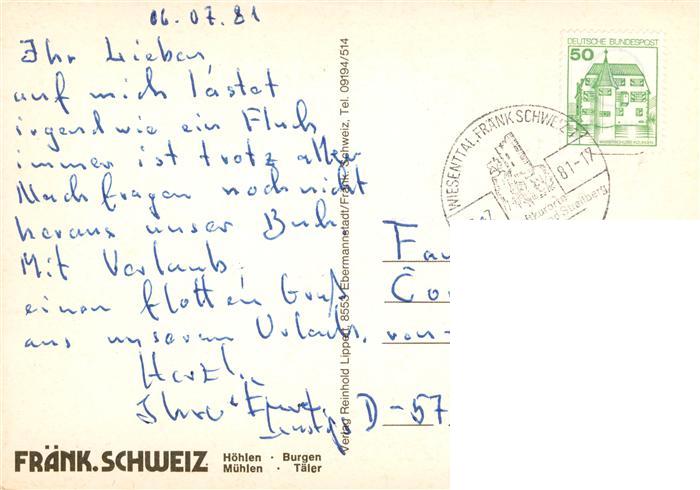 06.07.81
Ihr Lieben,
auf mich lastet
irgendwie ein Fluch
immer ist trotz aller
Nachfragen noch nicht
heraus unser Buch
Mit Verlaub,
einen flotten Gruß
aus unserem Urlaub, von
Herzl.
Ihre
FRÄNK. SCHWEIZ
Höhlen · Burgen
Mühlen · Täler
Verlag Reinhold Lippert, 8553 Ebermannstadt/Fränk. Schweiz, Tel. 09194/514
DEUTSCHE BUNDESPOST
50
WIESENTTAL, FRÄNK SCHWEIZ
81-17
Fa
Co
D-57